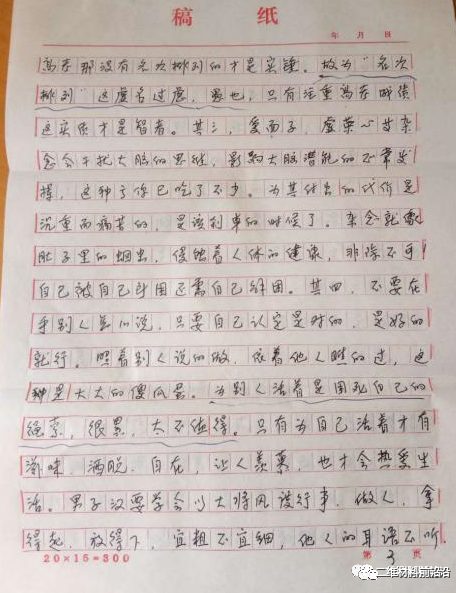 稿 纸
年 月 日
高考那没有名次排列的才是实锤。故为“名次
排列”这虚名过虑,愚也,只有注重高考成绩
这实质才是智者。其三,爱面子,虚荣心等杂
念会干扰大脑的思维,影响大脑潜能的正常发
挥,这种亏你已吃了不少。为其付出的代价是
沉重而痛苦的,是该刹车的时候了。杂念就像
肚子里的蛔虫,侵蚀着人体的健康,非除不可!
自己被自己斗困还需自己解困。其四,不要在
乎别人怎们说,只要自己认定是对的,是好的
就行。照着别人说的做,依着他人瞧的过,这
种是大大的傻瓜蛋。为别人活着是困死自己的
绳索,很累,太不值得。只有为自己活着才有
滋味,洒脱,自在,让人羡慕,也才会热爱生
活。男子汉要学会以大将风度行事,做人,拿
得起,放得下,宜粗不宜细,他人的耳语不听.
20×15=300
第 3 页
二维材料前沿